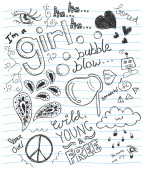 ha...ha...
ha...ha...
ha...
I'm a
girl
bubble
blow...
wild
YOUNG
&
FREE